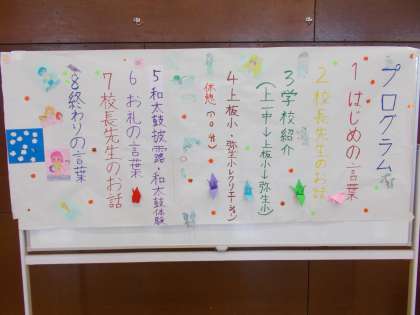 プログラム
1 はじめの言葉
2 校長先生のお話
3 学校紹介
(上一中→上板小→弥生小)
4 上板小・弥生小レクリエーション
休憩(10分)
5 和太鼓披露・和太鼓体験
6 お礼の言葉
7 校長先生のお話
8 終わりの言葉